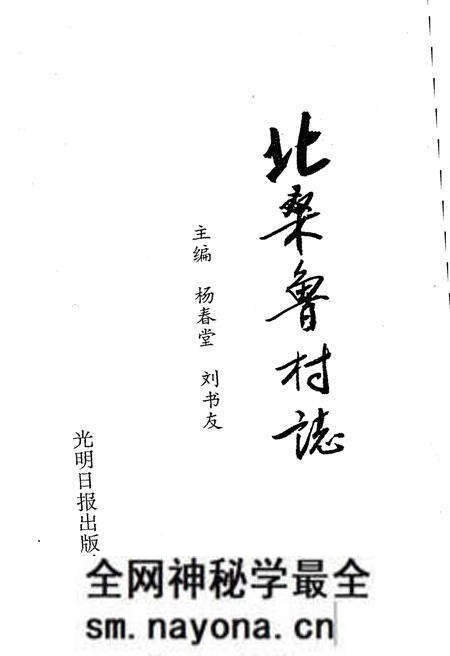 北桑鲁村誌
主编 杨春堂 刘书友
光明日报出版
全网神秘学最全
sm.nayona.cn